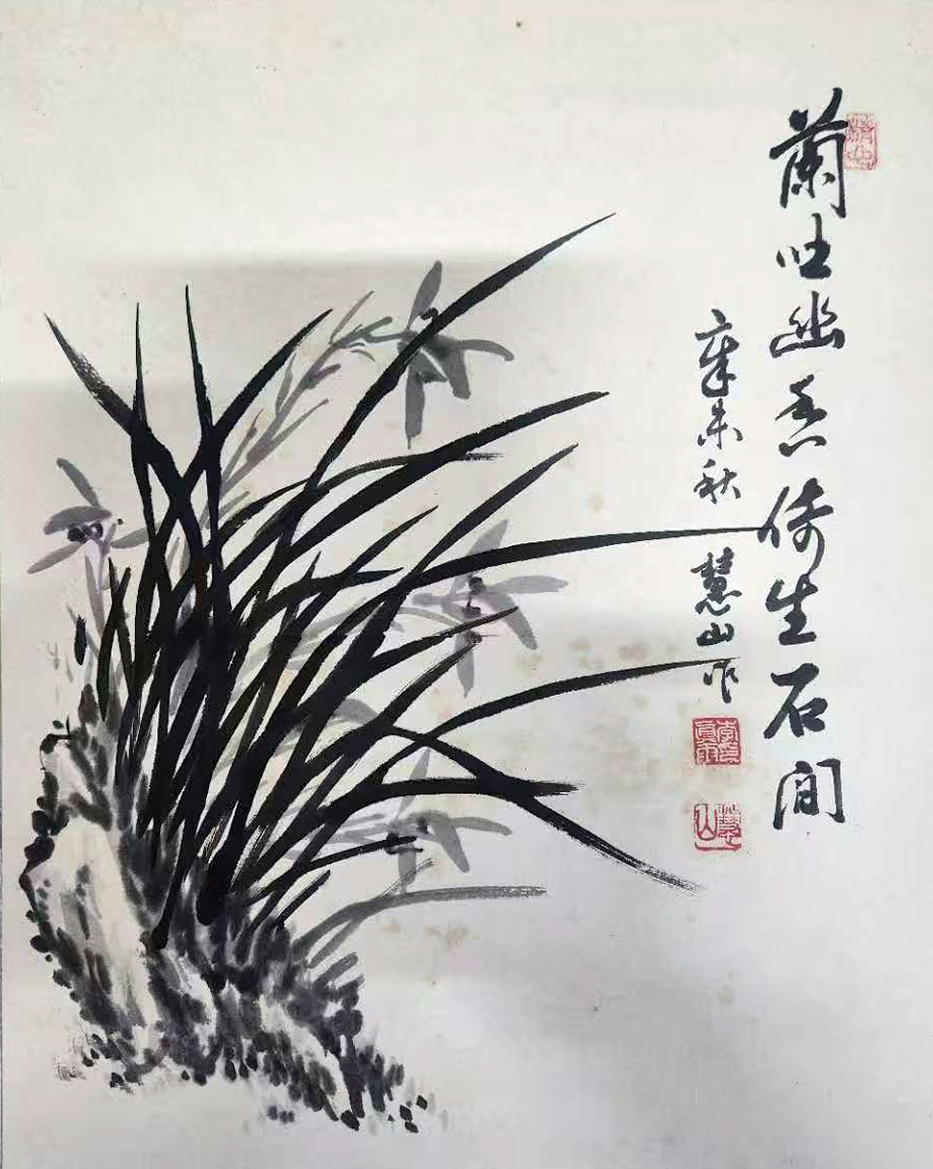 蘭吐幽香倚生石间
辛未秋 慧山作